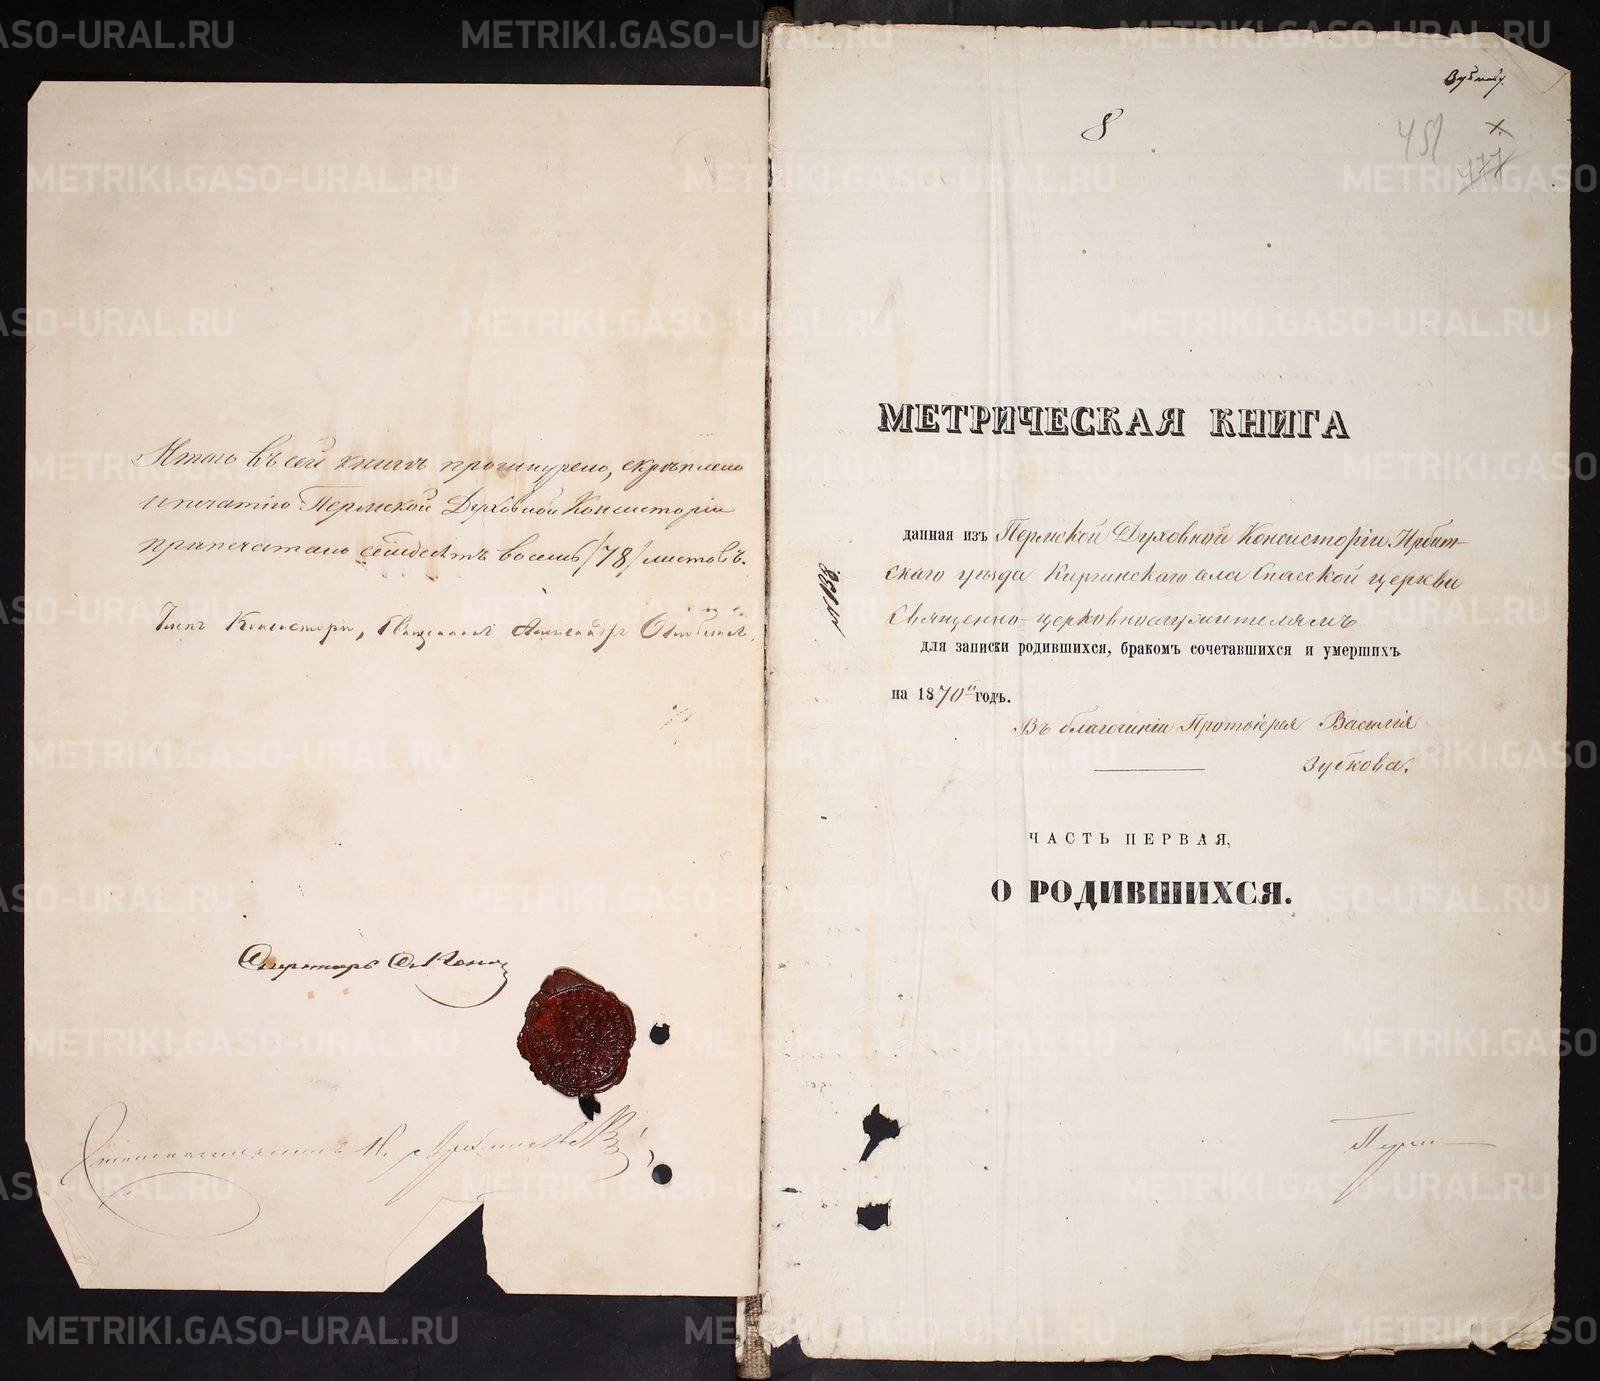 Итого въ сей книгѣ прошнурено, скрѣплено
и печатію Пермской Духовной Консисторіи
припечатано семдесятъ восемь /78/ листовъ.
Членъ Консисторіи, Священникъ Александръ
Секретарь
Зубкову.
8
451
477
МЕТРИЧЕСКАЯ КНИГА
данная изъ Пермской Духовной Консисторіи Ирбит-
скаго уѣзда Киргинскаго села Спасской церкви
Священно-церковнослужителямъ
для записки родившихся, бракомъ сочетавшихся и умершихъ
на 1870й годъ.
Въ благочиніи Протоіерея Василія
Зубкова.
ЧАСТЬ ПЕРВАЯ,
О РОДИВШИХСЯ.
METRIKI.GASO-URAL.RU